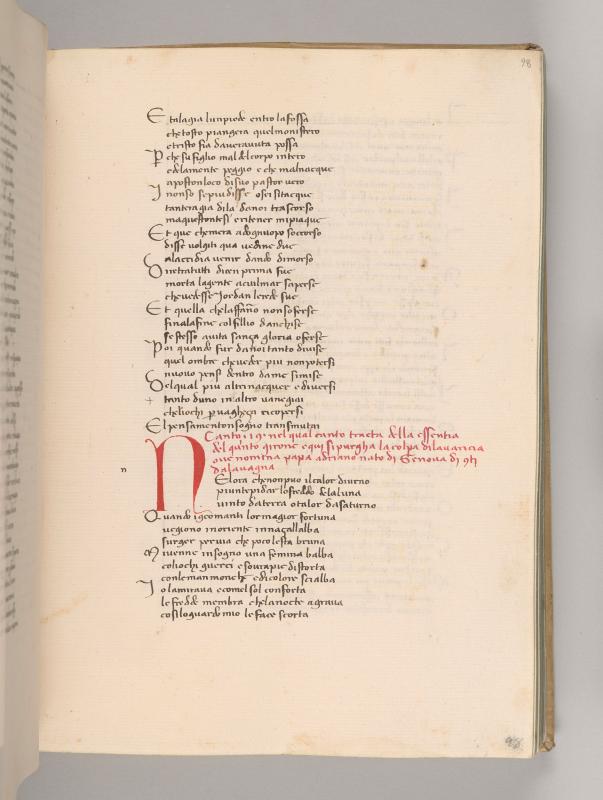 98
E talagia lunpiede entro lafossa
chetosto piangera quelmonistero
etristo fia daveravuta possa
P che sufiglio mal delcorpo intero
edelamente peggio e che malnacque
apostonloco disuo pastor vero
I nonso sepiu disse osei sitacque
tantera gia dila danoi trascorso
maquestontesi eritener mipiaque
Et que chemera adognuopo soccorso
disse volgiti qua vedine due
alaccidia venir dando dimorso
D iretratutti dicen prima fue
morta lagente acuilmar saperse
chevedesse Jordan lerede sue
Et quella chelaffano nonsoferse
finalafine colfillio danchise
sestesso avita sança gloria oferse
Poi quando fur danoi tanto divise
quel ombre cheveder piu nonpotersi
nuovo pensi dentro dame simise
Delqual piu altri nacquer e diversi
+ tanto duno in altro vanegiai
cheliochi p vagheça ricopersi
El pensamento nsogno transmutai
Canto 19 nel qual canto tracta della essentia
del quinto girone e qui si purgha la colpa di lavaricia
ove nomina papa adriano nato di Genova di 9ti
dalavagna
n
N Elora chenonpuo ilcalor diurno
piuntepidar lofreddo dela luna
vinto daterra otalor dasaturno
Quando igeomanti lor magior fortuna
vegiono inoriente innançi alalba
surger pervia che pocolesta bruna
Mi venne insogno una femina balba
coliochi guerci esovrapie distorta
conleman monche edicolore scialba
I olamirava ecomel sol conforta
lefredde membra chelanocte agrava
cosilosguardo mio leface scorta